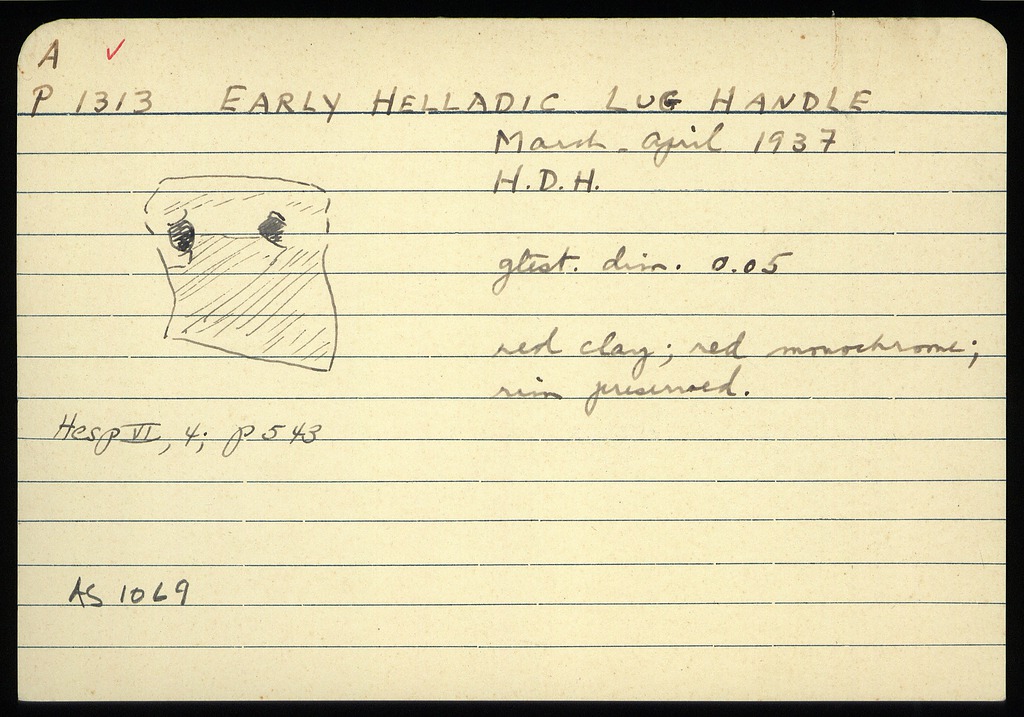 A ✓
P 1313 EARLY HELLADIC LUG HANDLE
March - April 1937
H.D.H.
gtest. dim. 0.05
red clay; red monochrome;
rim preserved.
Hesp VI, 4; p 543
AS 1069